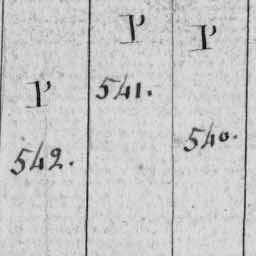 P
541.
P
540.
P
542.